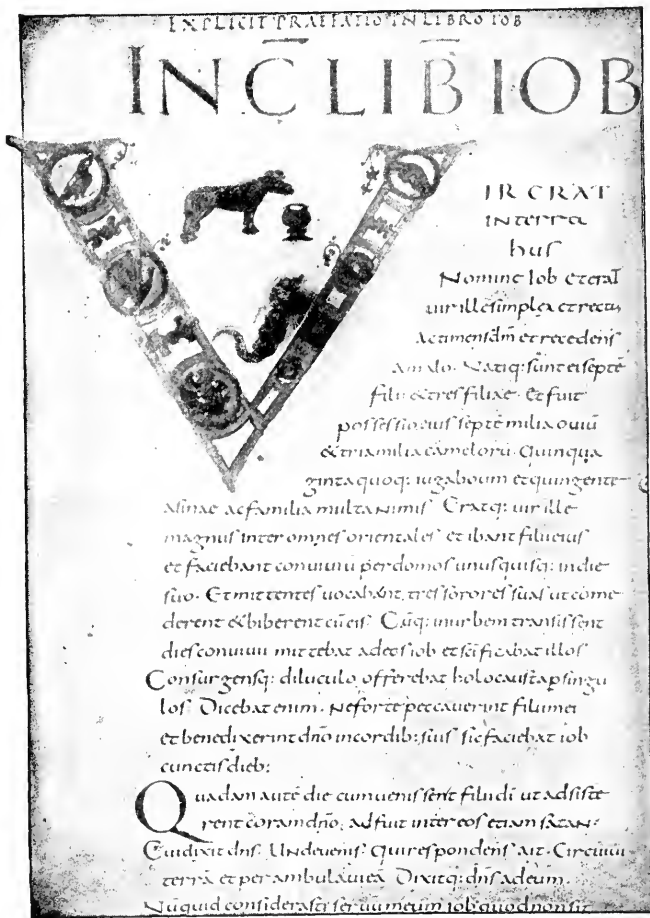 EXPLICIT PRAEFATIO IN LIBRO IOB
INC̄ LIB̄ IOB
VIR ERAT
IN terra
bus
Nomine Iob et erat̄
uir ille simplex et rectus
ac timens dm̄ et recedens
a malo. Natiq: sunt ei septē
filii & tres filiae. Et fuit
possessio eius septē milia ouiū
& tria milia camelorū. Quinqua
ginta quoq: iuga boum et quingente
asinae ac familia multa nimis Eratq: uir ille
magnus inter omnes orientales et ibant filii eius
et faciebant conuiuiū per domos unusquisq: in die
suo. Et mittentes uocabant tres sorores suas ut come
derent & biberent cū eis Cūq: in urbem transissent
dies conuiuii mittebat ad eos iob et scificabat illos
Consurgensq: diluculo offerebat holocausta p singu
los. Dicebat enim. Ne forte peccauerint filii mei
et benedixerint dn̄o in cordib: suis sic faciebat iob
cunctis dieb:
Quadam autē die cum uenissent filii dī ut adsiste
rent coram dn̄o, adfuit inter eos etiam satan.
Cui dixit dn̄s. Unde uenis. Qui respondens ait. Circuiui
terrā et perambulaui eā Dixitq: dn̄s ad eum.
Nūquid considerasti seruū meum iob quod non sit